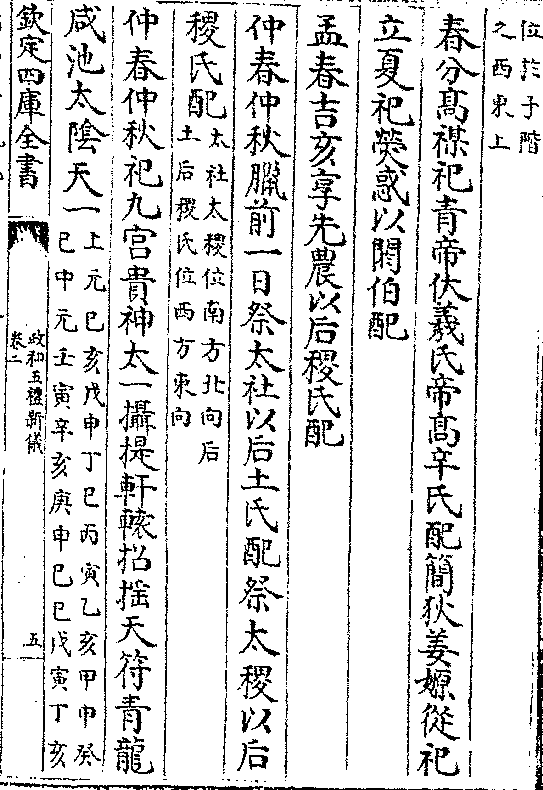 位於子階
之西東上
春分高禖祀青帝伏羲氏帝高辛氏配簡狄姜嫄從祀
立夏祀熒惑以閼伯配
孟春吉亥享先農以后稷氏配
仲春仲秋臘前一日祭太社以后土氏配祭太稷以后
稷氏配太社太稷位南方北向后
土后稷氏位西方東向
仲春仲秋祀九宮貴神太一攝提軒轅招搖天符青龍
咸池太隂天一上元巳亥戊申丁巳丙寅乙亥甲申癸
巳中元壬寅辛亥庚申巳巳戊寅丁亥
欽定四庫全書
政和五禮新儀
卷二
五